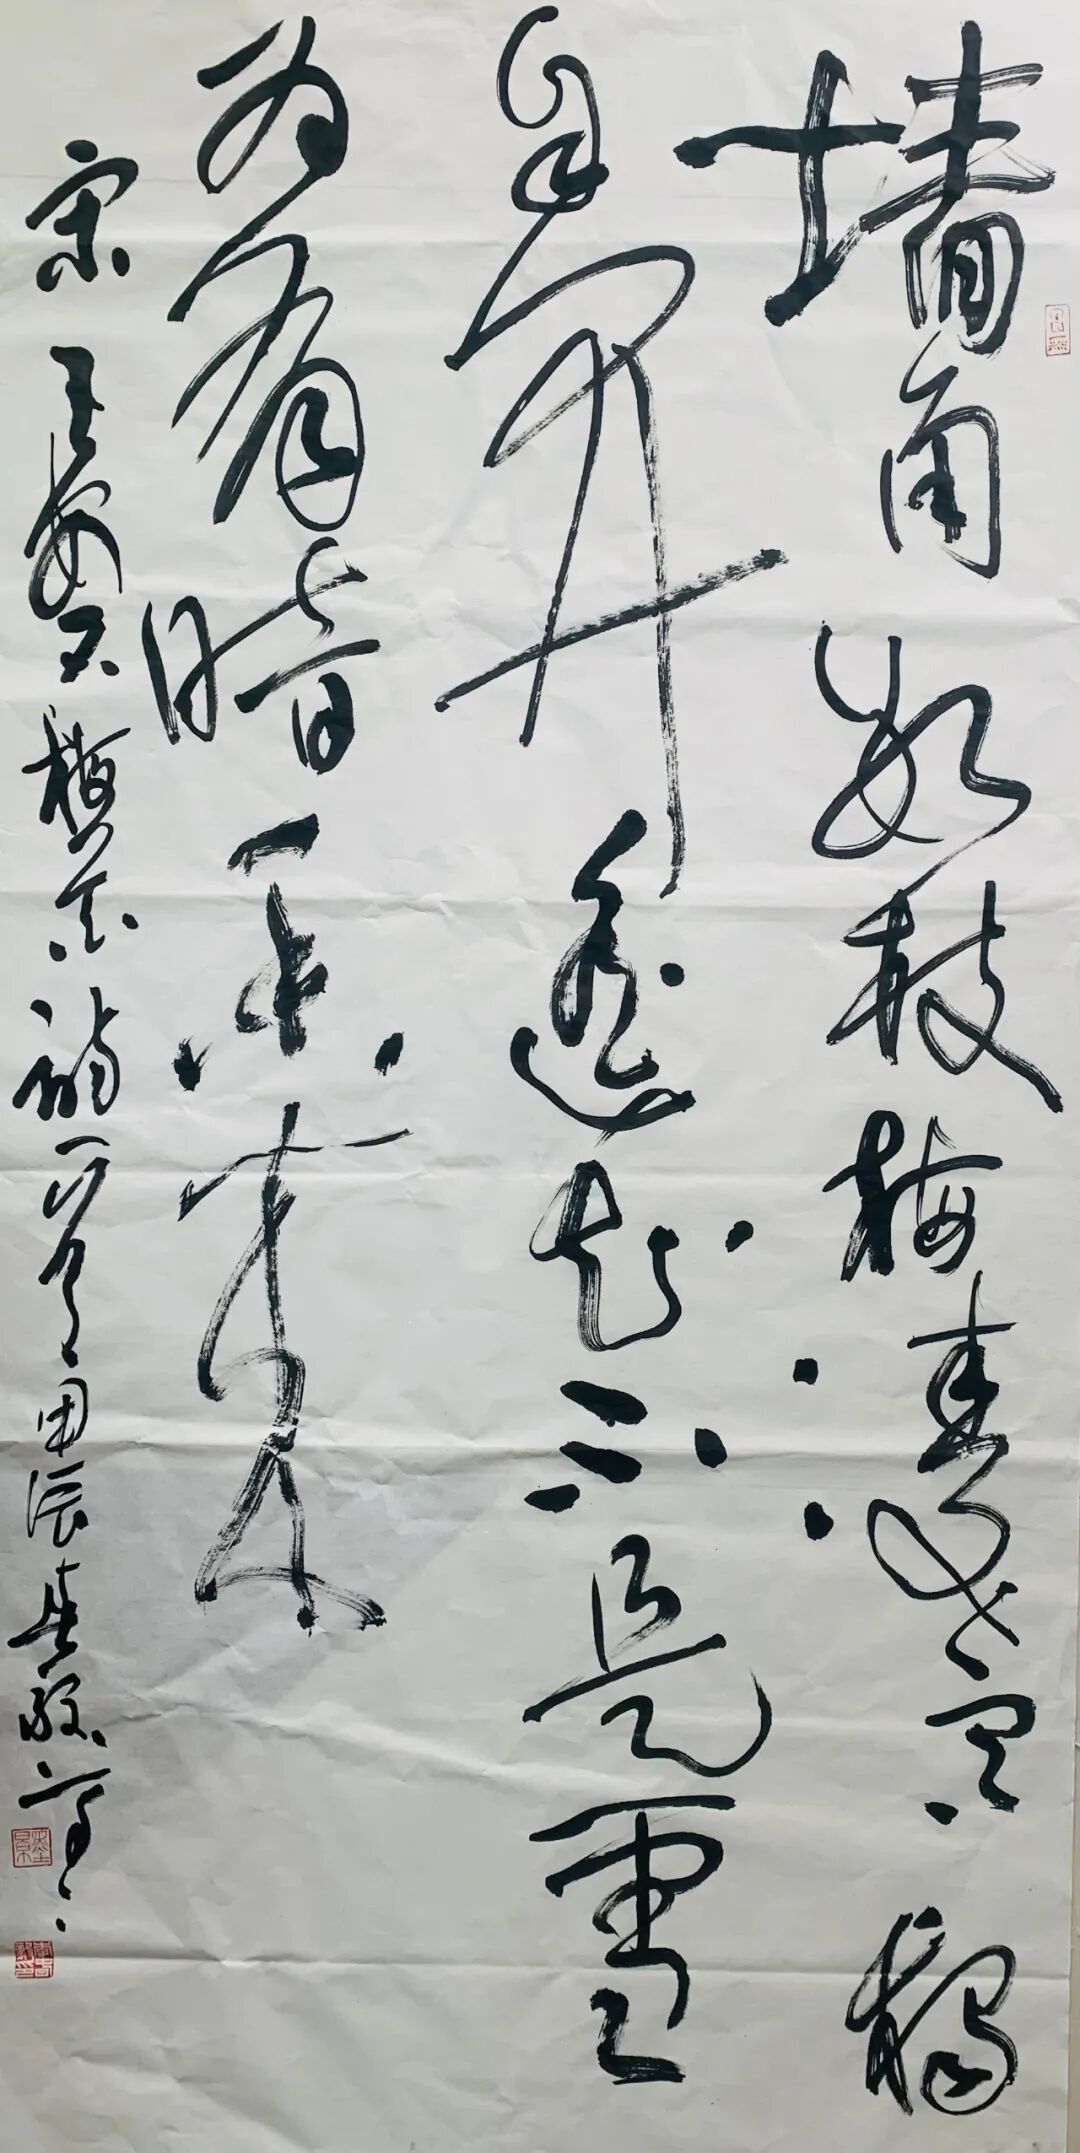 墙角数枝梅凌寒独
自开遥知不是雪
为有暗香来
宋王安石梅花诗一首甲辰春